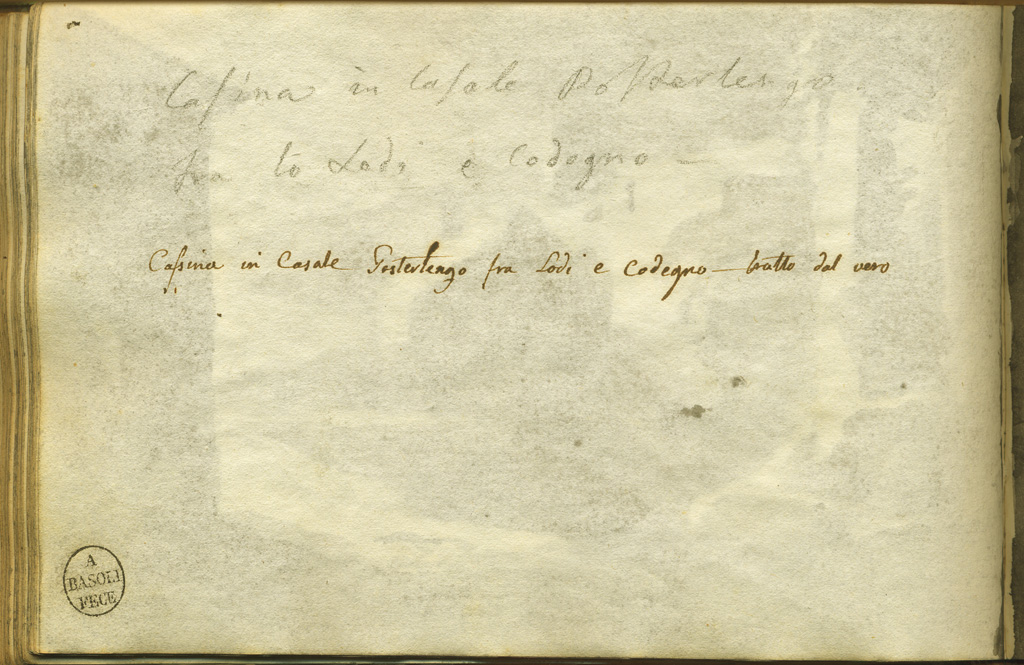 Caſsina in Caſale Poſterlengo
fra lo Lodi e Codogno —
Caſsina in Casale Posterlengo fra Lodi e Codogno — tratto dal vero
A
BASOLI
FECE